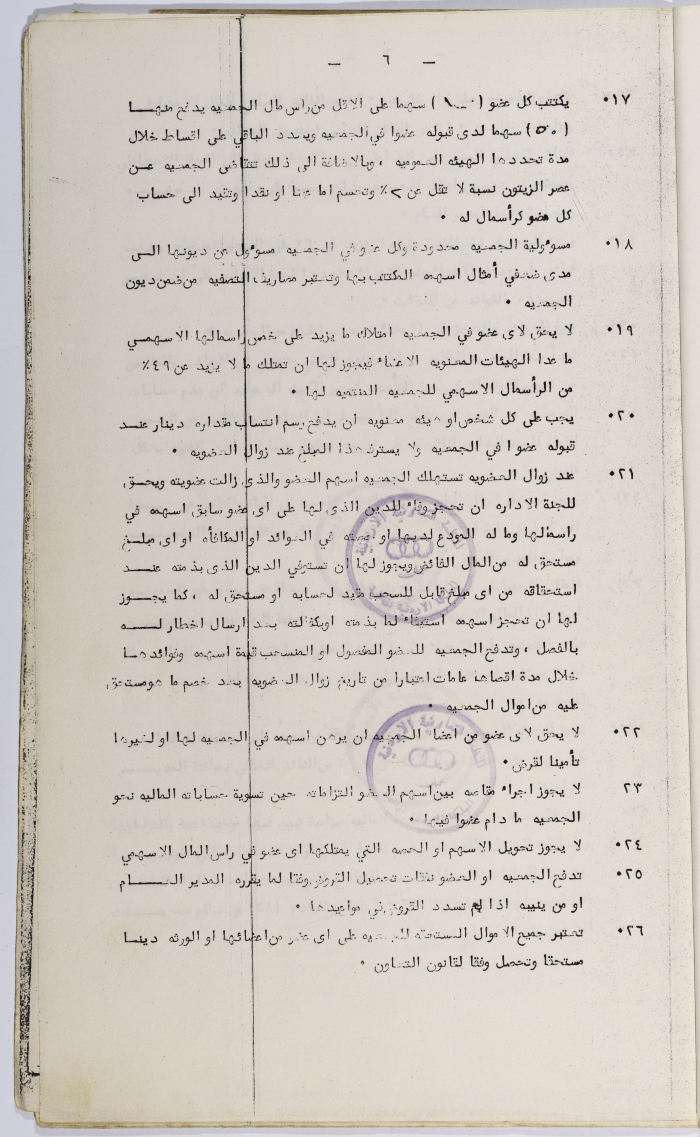 - ٦ -
١٧٠ يكتتب كل عضو (١٠٠) سهما على الاقل من رأس مال الجمعيه يدفع منهـــا
(٥٠) سهما لدى قبوله عضوا في الجمعيه ويسدد الباقي على اقساط خلال
مدة تحددها الهيئه العموميه ، وبالاضافة الى ذلك تتقاضى الجمعيه عــن
عصر الزيتون نسبة لا تقل عن ٢٪ وتحسم اما عينا او نقدا وتقيد الى حساب
كل عضو كرأسمال له ٠
١٨٠ مسؤولية الجمعيه محدودة وكل عضو في الجمعيه مسوؤل عن ديونها الــى
مدى ضعفي أمثال اسهمه المكتتب بها وتعتبر مصاريف التصفيه من ضمن ديون
الجمعيه ٠
١٩٠ لا يحق لاى عضو في الجمعيه امتلاك ما يزيد على خمس راسمالها الاسهمـي
ما عدا الهيئات المعنويه الاعضاء فيجوز لها ان تمتلك ما لا يزيد عن ٤٩٪
من الرأسمال الاسهمي للجمعيه المنتميه لها ٠
٢٠٠ يجب على كل شخص او هيئه معنويه ان يدفع رسم انتساب مقداره دينار عنــد
قبوله عضوا في الجمعيه ولا يسترد هذا المبلغ عند زوال العضويه ٠
٢١٠ عند زوال العضويه تستهلك الجمعيه اسهم العضو والذى زالت عضويته ويحــق
للجنة الاداره ان تحجز وفاء للدين الذى لها على اى عضو سابق اسهمه في
راسمالها وما له المودع لديها او حصته في العوائد او المكافأه او اى مبلــغ
مستحق له من المال الفائض ويجوز لها ان تستوفي الدين الذى بذمته عنـــد
استحقاقه من اى مبلغ قابل للسحب مقيد لحسابه او مستحق له ، كما يجـــوز
لها ان تحجز اسهمه استيفاء لما بذمته او بكفالته بعد ارسال اخطار لــــه
بالفصل ، وتدفع الجمعيه للعضو المفصول او المنسحب قيمة اسهمه وفوائدهــا
خلال مدة اقصاها عامان اعتبارا من تاريخ زوال العضويه بعد خصم ما هو مستحق
عليه من اموال الجمعيه ٠
٢٢٠ لا يحق لاى عضو من اعضاء الجمعيه ان يرهن اسهمه في الجمعيه لها او لغيرها
تأمينا لقرض ٠
٢٣ لا يجوز اجراء مقاصه بين اسهم العضو والتزاماته حين تسوية حساباته الماليه نحو
الجمعيه ما دام عضوا فيها ٠
٢٤٠ لا يجوز تحويل الاسهم او الحصه التي يمتلكها اى عضو في راس المال الاسهمي
٢٥٠ تدفع الجمعيه او العضو نفقات تحصيل القروض وفقا لما يقرره المدير العـــام
او من ينيبه اذا لم تسدد القروض في مواعيدها ٠
٢٦٠ تعتبر جميع الاموال المستحقه للجمعيه على اى عضو من اعضائها او الورثه دينـا
مستحقا وتحصل وفقا لقانون التعاون ٠